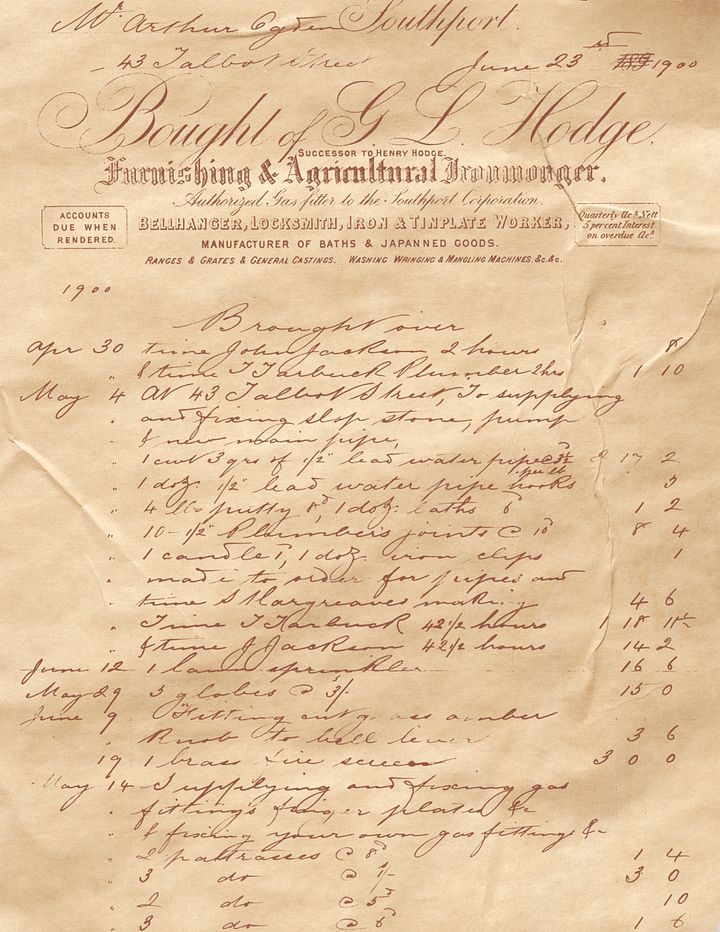 Mr Arthur Ogden Southport.
43 Talbot Street June 23rd 1900
Bought of G L Hodge.
SUCCESSOR TO HENRY HODGE.
Furnishing & Agricultural Ironmonger.
Authorized Gas fitter to the Southport Corporation.
ACCOUNTS DUE WHEN RENDERED.
BELLHANGER, LOCKSMITH, IRON & TINPLATE WORKER,
Quarterly a/cs Nett 5 percent Interest on overdue a/cs
MANUFACTURER OF BATHS & JAPANNED GOODS.
RANGES & GRATES & GENERAL CASTINGS. WASHING WRINGING & MANGLING MACHINES, &c. &c.
1900
Brought over
Apr 30 time John Jackson 2 hours 8
" & time T Tarbuck Plumber 2 hrs 1 10
May 4 At 43 Talbot Street, To supplying
" and fixing slop stone, pump
" & new main pipe,
" 1 cwt 3 qrs of 1/2" lead water pipe @ 3½d per lb 2 17 2
" 1 doz 1/2" lead water pipe hooks
" 4 lbs putty 8d, 1 doz laths 6d 1 2
" 10-1/2" Plumbers joints @ 10d 8 4
" 1 candle 1, 1 doz iron clips 1
" made to order for pipes and
" time S Hargreaves making 4 6
" Time T Tarbuck 42 1/2 hours 1 18 11½
" & time J Jackson 42 1/2 hours 14 2
June 12 1 lawn sprinkler 16 6
May 29 5 globes @ 3/- 15 0
June 9 Fitting amber
" Knob to bell lever 3 6
19 1 brass fire screen 3 0 0
May 14 Supplying and fixing gas
" fittings finger plates &c
" & fixing your own gas fittings &c
" 2 pattrasses @ 8d 1 4
" 3 do @ 1/- 3 0
" 2 do @ 5d 10
" 3 do @ 6d 1 6